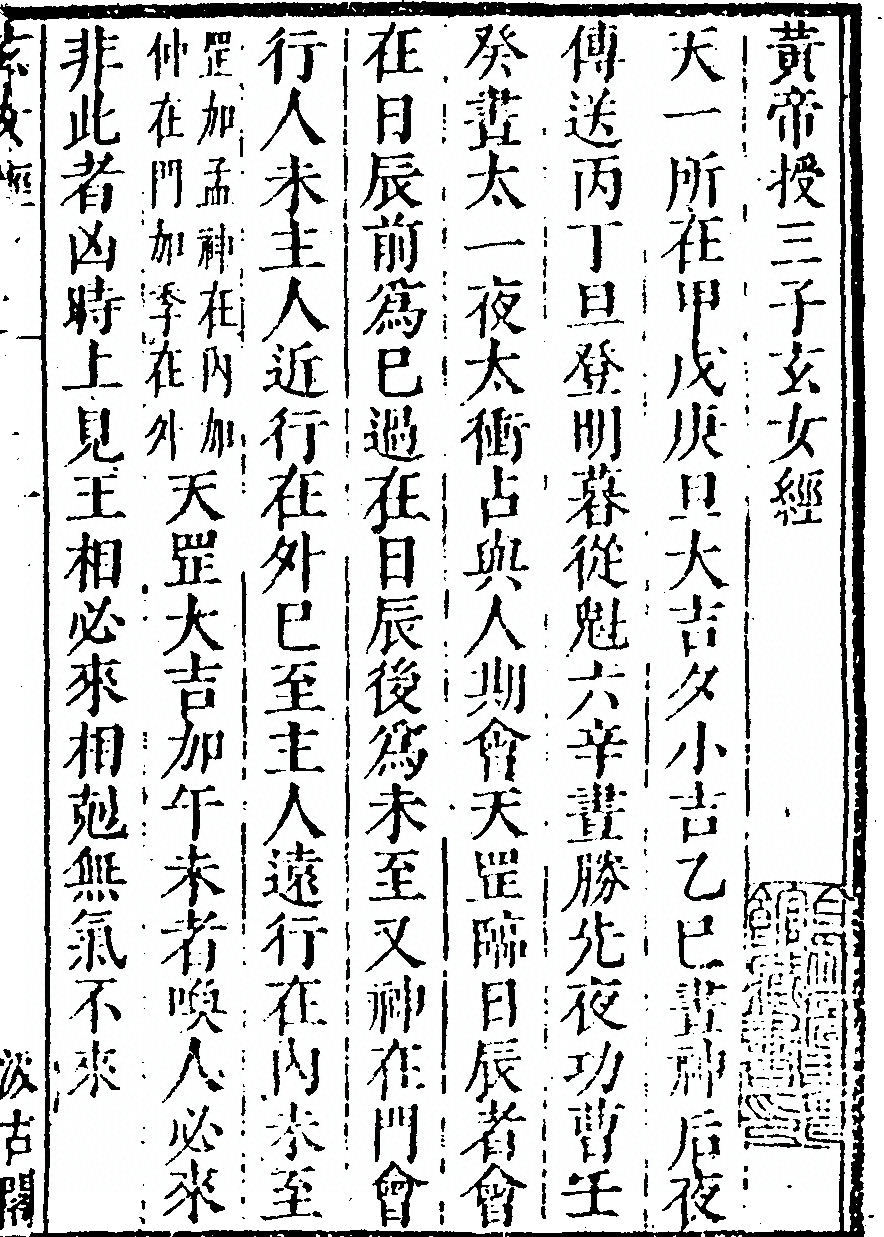 黃帝授三子玄女經
天一所在甲戊庚旦大吉夕小吉乙巳晝神后夜
傳送丙丁旦登明暮從魁六辛晝勝先夜功曹壬
癸晝太一夜太衝占與人期會天罡臨日辰者會
在日辰前為巳過在日辰後為未至又神在門會
行人未主人近行在外巳至主人遠行在內未至
罡加孟神在內加
仲在門加季在外
天罡大吉加午未者喚人必來
非此者凶時上見王相必來相剋無氣不來
玄女經
一
汲古閣